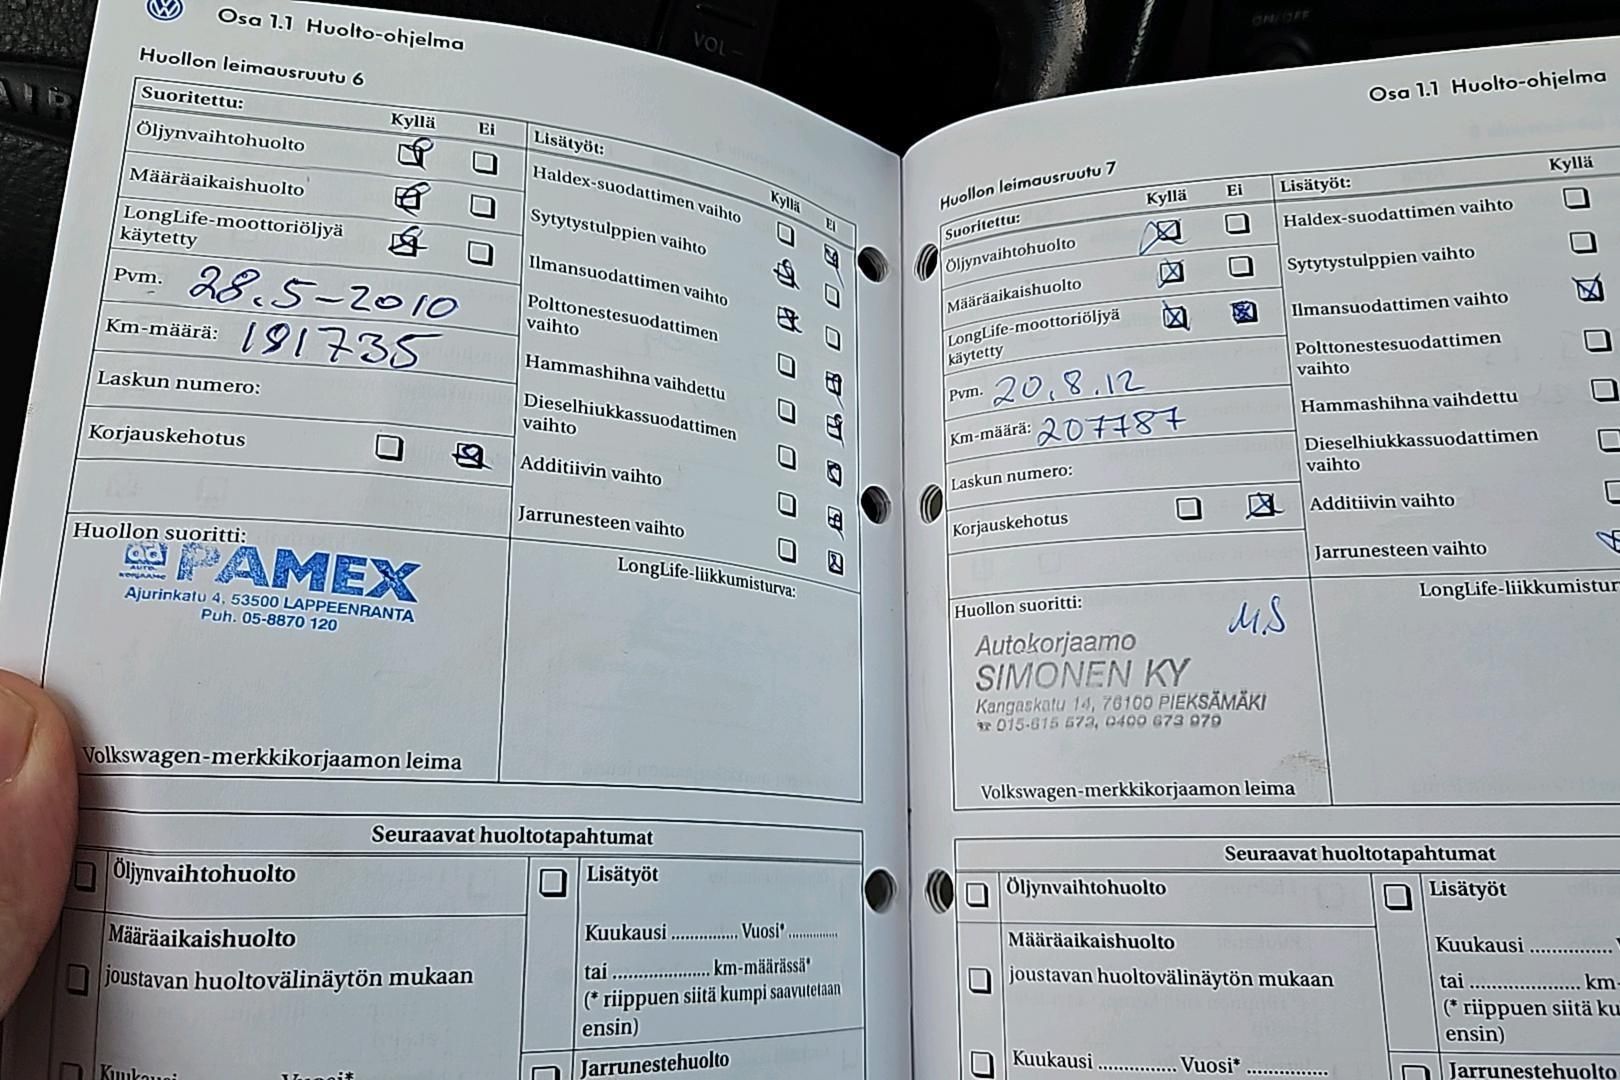 Osa 1.1 Huolto-ohjelma
Huollon leimausruutu 6
Suoritettu:
Kyllä Ei
Öljynvaihtohuolto
Määräaikaishuolto
LongLife-moottoriöljyä
käytetty
Pvm. 28.5-2010
Km-määrä: 191735
Laskun numero:
Korjauskehotus
Lisätyöt:
Kyllä Ei
Haldex-suodattimen vaihto
Sytytystulppien vaihto
Ilmansuodattimen vaihto
Polttonestesuodattimen
vaihto
Hammashihna vaihdettu
Dieselhiukkassuodattimen
vaihto
Additiivin vaihto
Jarrunesteen vaihto
Huollon suoritti:
ad PAMEX
AUTO-
KORJAAMO
Ajurinkatu 4, 53500 LAPPEENRANTA
Puh. 05-8870 120
LongLife-liikkumisturva:
Volkswagen-merkkikorjaamon leima
Seuraavat huoltotapahtumat
Öljynvaihtohuolto
Määräaikaishuolto
joustavan huoltovälinäytön mukaan
Kuukausi ............... Vuosi*
Lisätyöt
Kuukasi ............... Vuosi* ...........
tai .................... km-määrässä*
(* riippuen siitä kumpi saavutetaan
ensin)
Jarrunestehuolto
Osa 1.1 Huolto-ohjelma
Huollon leimausruutu 7
Suoritettu:
Kyllä Ei
Öljynvaihtohuolto
Määräaikaishuolto
LongLife-moottoriöljyä
käytetty
Pvm. 20.8.12
Km-määrä: 207787
Laskun numero:
Korjauskehotus
Lisätyöt:
Kyllä
Haldex-suodattimen vaihto
Sytytystulppien vaihto
Ilmansuodattimen vaihto
Polttonestesuodattimen
vaihto
Hammashihna vaihdettu
Dieselhiukkassuodattimen
vaihto
Additiivin vaihto
Jarrunesteen vaihto
Huollon suoritti:
M.S
Autokorjaamo
SIMONEN KY
Kangaskatu 14, 76100 PIEKSÄMÄKI
015-615 573, 0400 673 979
LongLife-liikkumistur
Volkswagen-merkkikorjaamon leima
Seuraavat huoltotapahtumat
Öljynvaihtohuolto
Määräaikaishuolto
joustavan huoltovälinäytön mukaan
Kuukausi ............... Vuosi* ...............
Lisätyöt
Kuukausi ...............
tai .................... km-
(* riippuen siitä ku
ensin)
Jarrunestehuolto
VOL -
ON/OFF
AIR